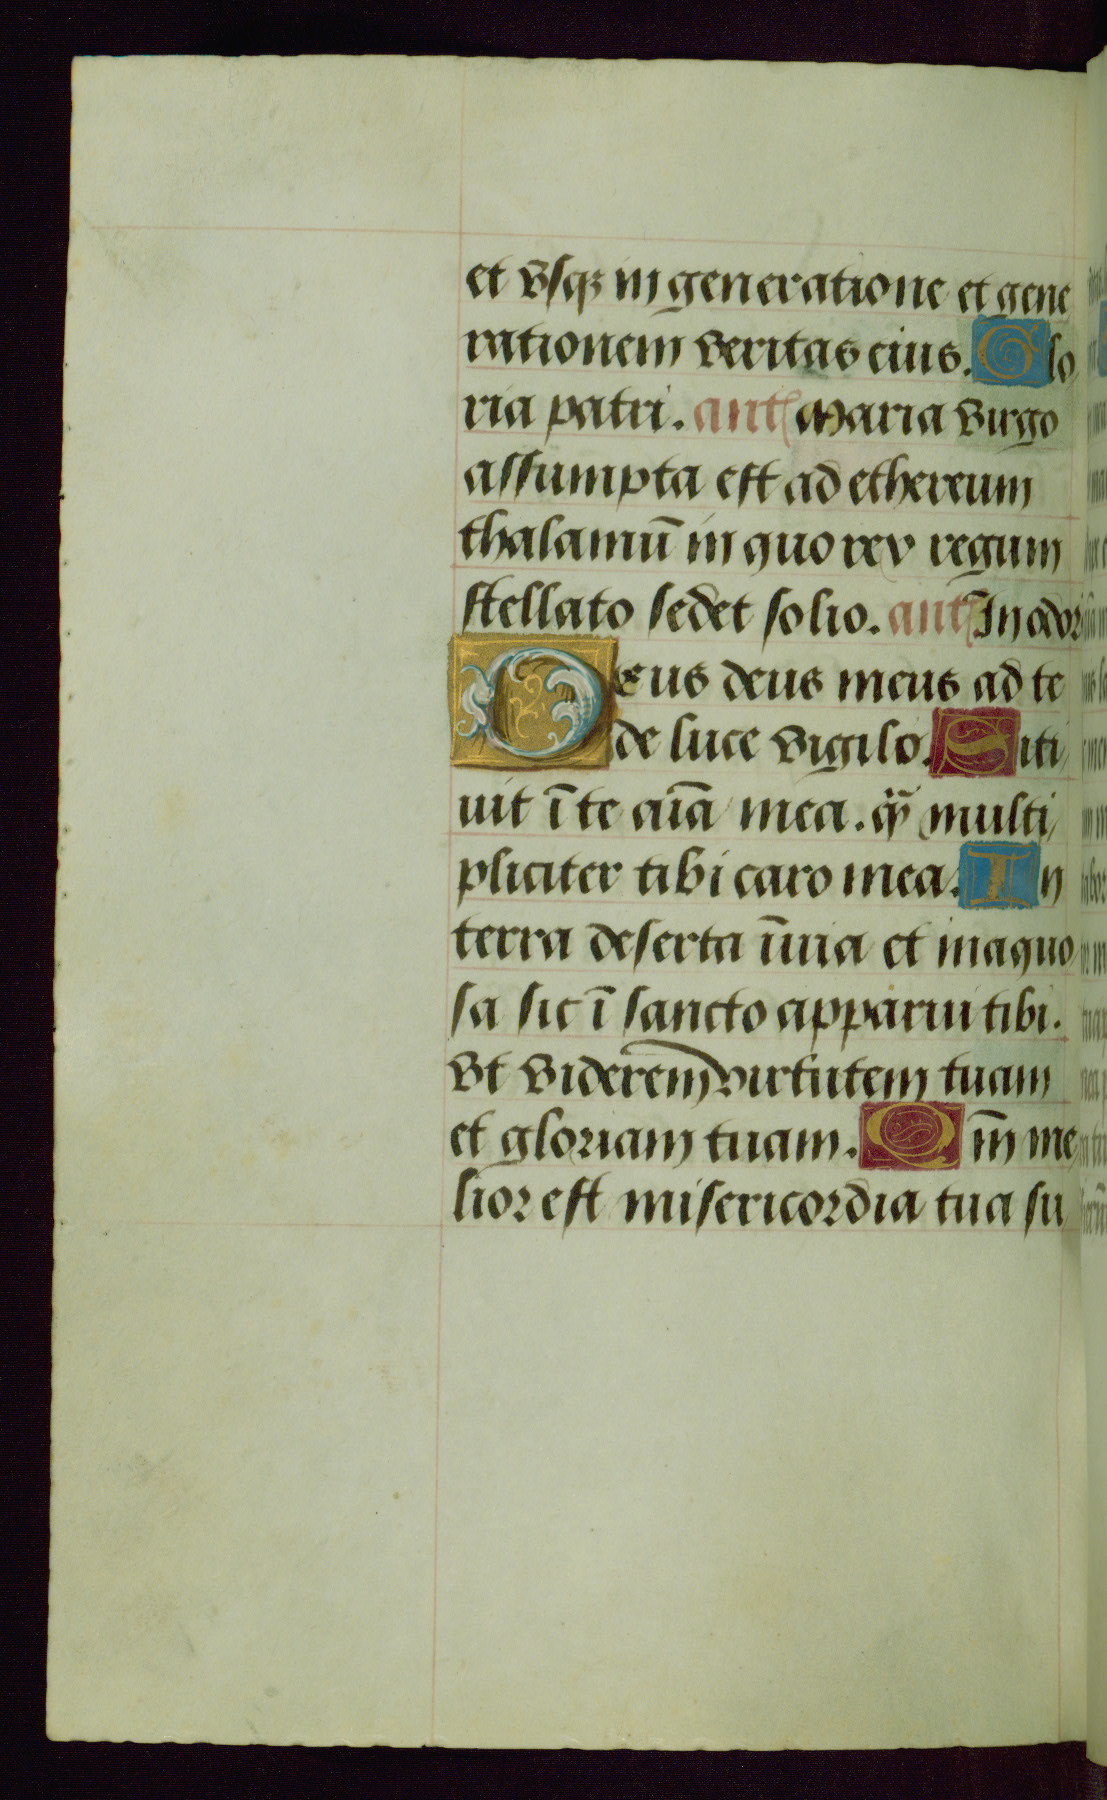 et vsqꝫ in generatione et gene
rationem veritas eius. Glo
ria patri. ant Maria virgo
assumpta est ad ethereum
thalamū in quo rex regum
stellato sedet solio. ant In odor
Deus deus meus ad te
de luce vigilo. Siti
uit ī te aīa mea. q̄ multi
pliciter tibi caro mea. In
terra deserta īuia et inaquo
sa sic ī sancto apparui tibi.
vt viderem virtutem tuam
et gloriam tuam. Qm̄ me
lior est misericordia tua su